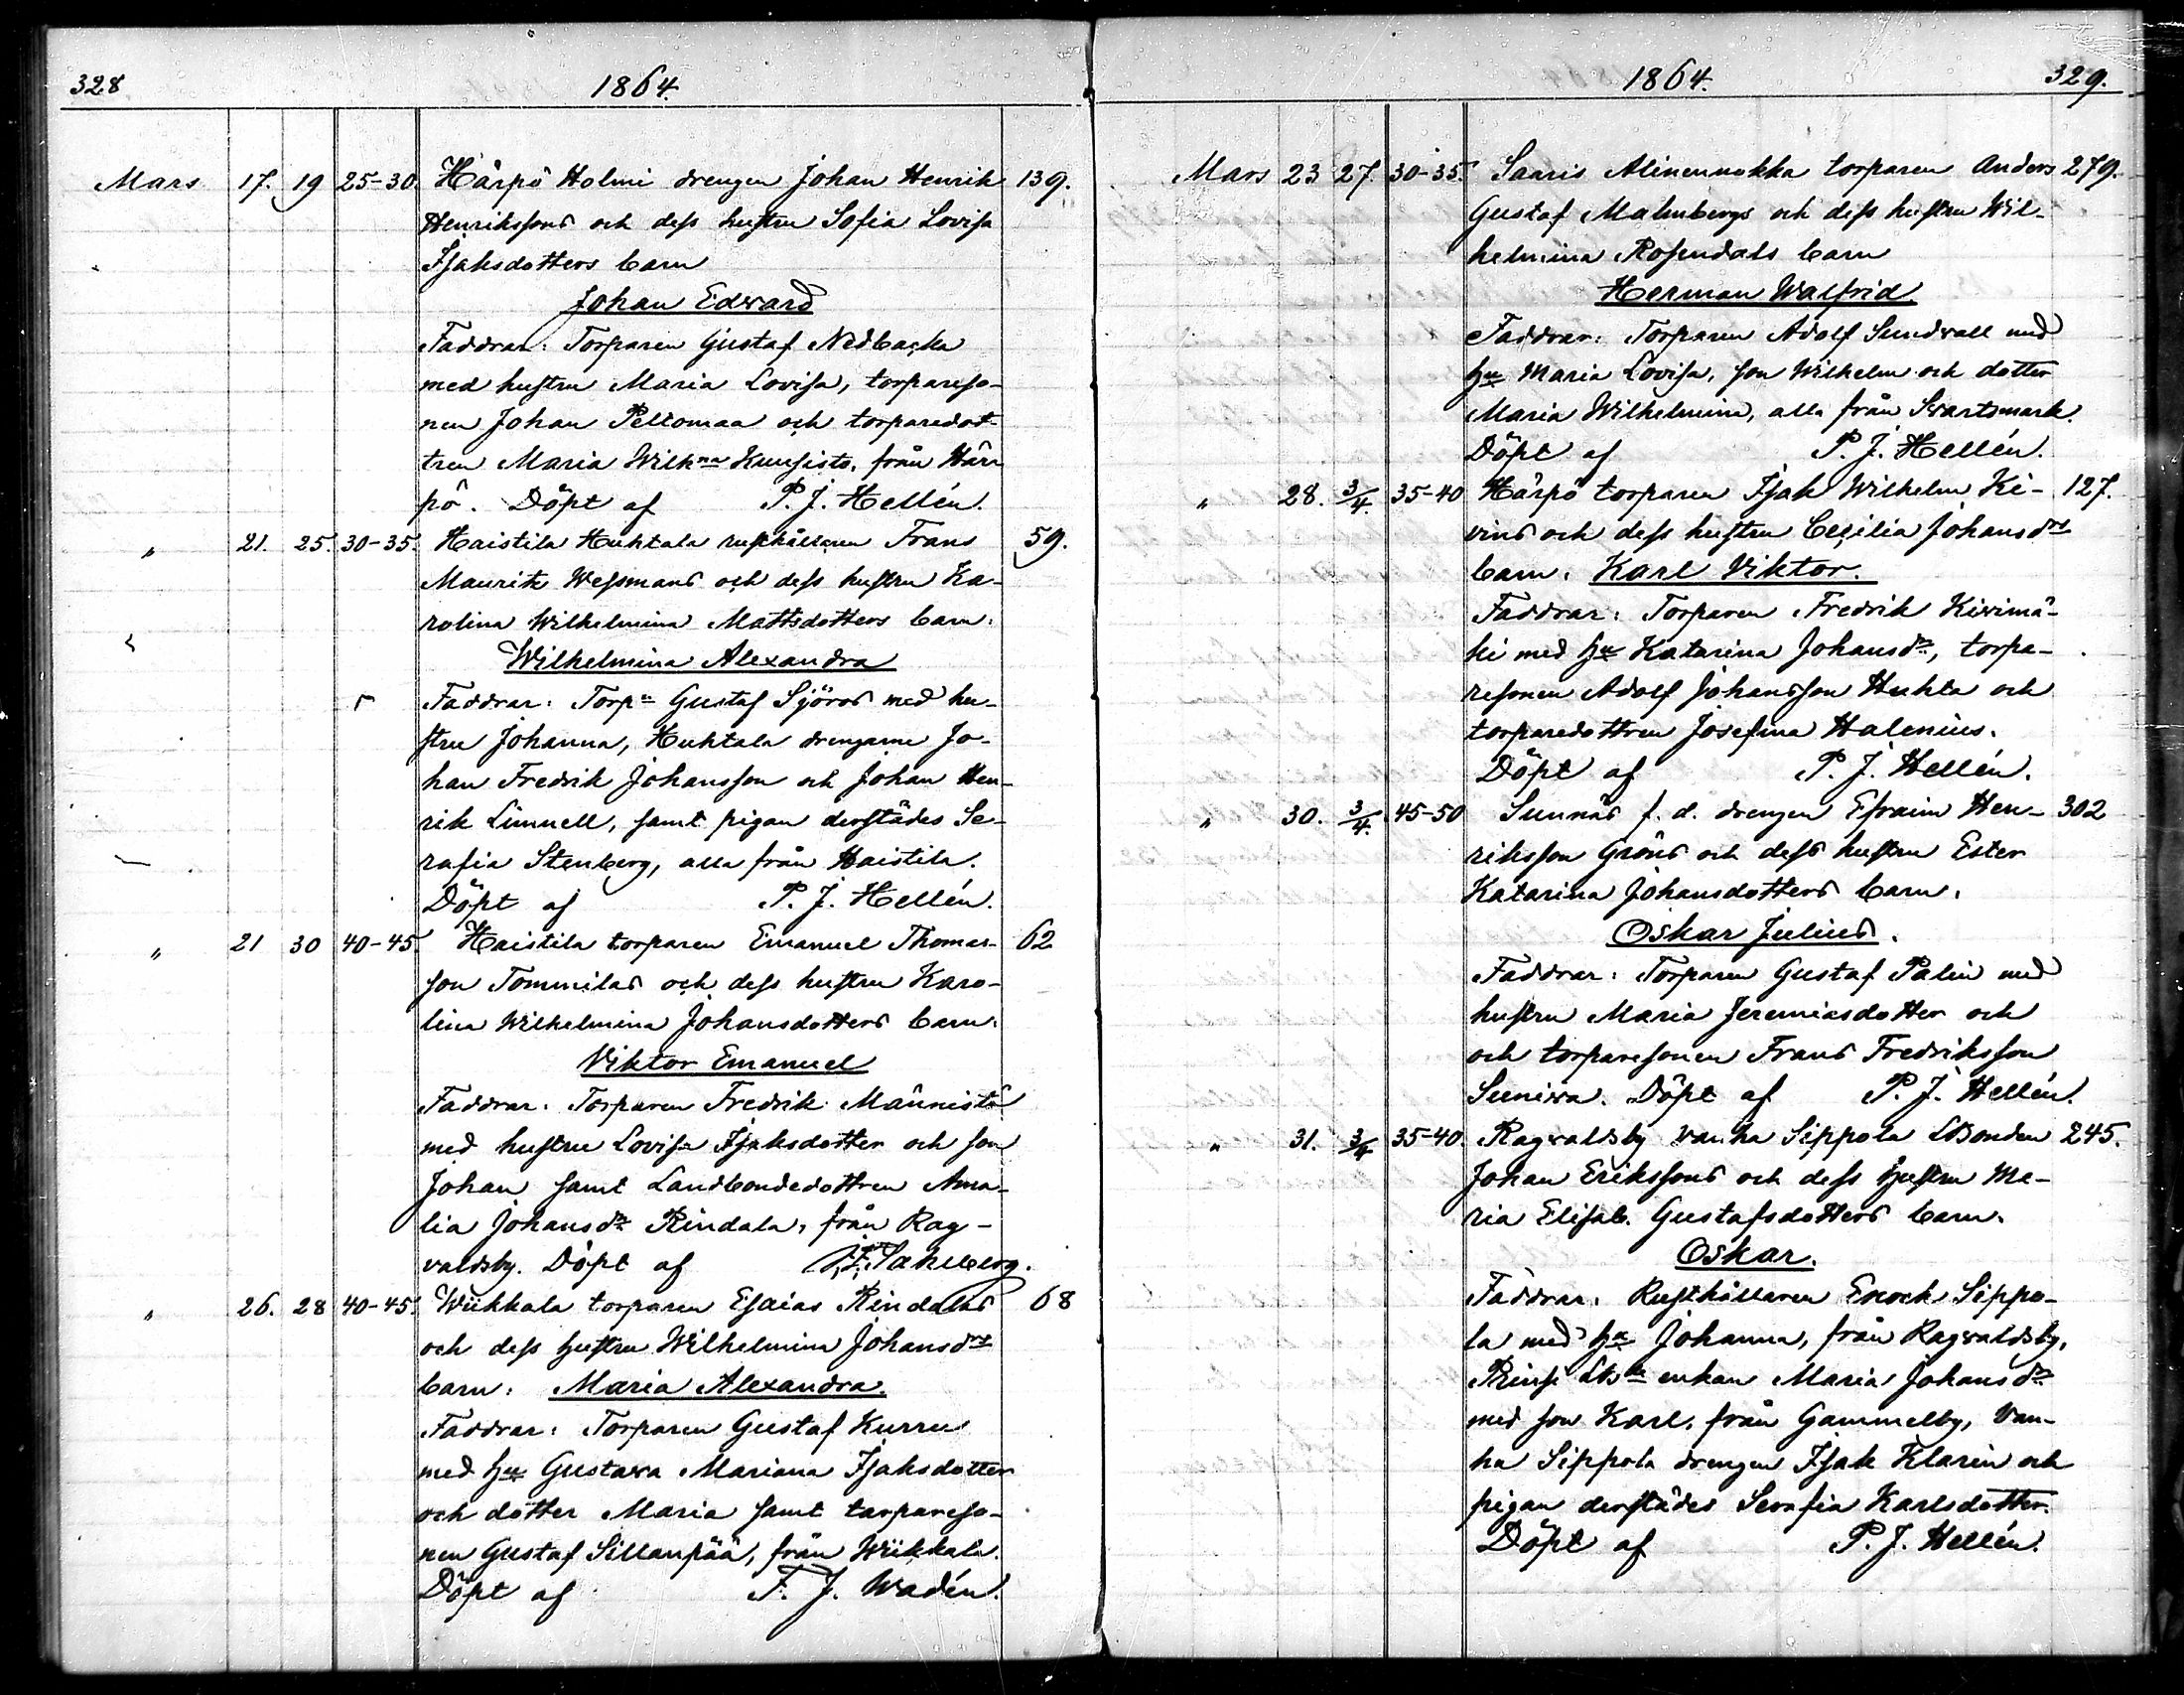 328
1864.
Mars 17. 19 25-30 Hårpö Holmi drengen Johan Henrik 139.
Henrikssons och dess hustru Sofia Lovisa
Isaksdotters barn
Johan Edward
Faddrar: Torparen Gustaf Nedbacka
med hustru Maria Lovisa, torpareso-
nen Johan Peltomaa och torparedot-
tren Maria Wilhna Kuusisto, från Hår-
pö. Döpt af P. J. Hellén.
" 21. 25. 30-35. Haistila Huhtala rusthållaren Frans 59.
Maurits Wessmans och dess hustru Ka-
rolina Wilhelmina Mattsdotters barn.
Wilhelmina Alexandra
Faddrar: Torpn Gustaf Sjöros med hu-
stru Johanna, Huhtala drengarne Jo-
han Fredrik Johansson och Johan Hen-
rik Linnell, samt pigan derstädes Se-
rafia Stenberg, alla från Haistila.
Döpt af P. J. Hellén.
" 21 30 40-45. Haistila torparen Emanuel Thomas- 62
son Tommilas och dess hustru Karo-
lina Wilhelmina Johansdotters barn.
Viktor Emanuel
Faddrar: Torparen Fredrik Männistö
med hustru Lovisa Isaksdotter och son
Johan samt Landbondedottren Ama-
lia Johansdr Rindala, från Rag-
valdsby. Döpt af Sahlberg.
" 26. 28 40-45. Wiikkala torparen Esaias Rindalas 68
och dess hustru Wilhelmina Johansdrs
barn: Maria Alexandra.
Faddrar: Torparen Gustaf Kurru
med hu Gustava Mariana Isaksdotter
och dotter Maria samt torpareso-
nen Gustaf Sillanpää, från Wiikkala.
Döpt af F. J. Wadén.
1864.
329.
Mars 23 27. 30-35. Saaris Alinennokka torparen Anders 279.
Gustaf Malmbergs och dess hustru Wil-
helmina Rosendals barn
Herman Walfrid
Faddrar: Torparen Adolf Sundvall med
hu Maria Lovisa, son Wilhelm och dotter
Maria Wilhelmina, alla från Svartsmark.
Döpt af P. J. Hellén.
" 28. 3/4. 35-40 Hårpö torparen Isak Wilhelm Ki- 127.
vins och dess hustru Cecilia Johansdrs
barn: Karl Viktor.
Faddrar: Torparen Fredrik Kivimä-
ki med hu Katarina Johansdr, torpa-
resonen Adolf Johansson Huhta och
torparedottren Josefina Halenius.
Döpt af P. J. Hellén.
" 30. 3/4. 45-50 Sunnäs f. d. drengen Efraim Hen- 302
riksson Gröns och dess hustru Ester
Katarina Johansdotters barn.
Oskar Julius.
Faddrar: Torparen Gustaf Palin med
hustru Maria Jeremiasdotter och
och torparesonen Frans Fredriksson
Suniva. Döpt af P. J. Hellén.
" 31. 3/4 35-40. Ragvaldsby vanha Sippola Lbonden 245.
Johan Erikssons och dess hustru Ma-
ria Elisab. Gustafsdotters barn.
Oskar.
Faddrar: Rusthållaren Enock Sippo-
la med hu Johanna, från Ragvaldsby,
Prinsi enkan Maria Johansdr
med son Karl, från Gammelby, Van-
ha Sippola drengen Isak Klarin och
pigan derstädes Serafia Karlsdotter.
Döpt af P. J. Hellén.